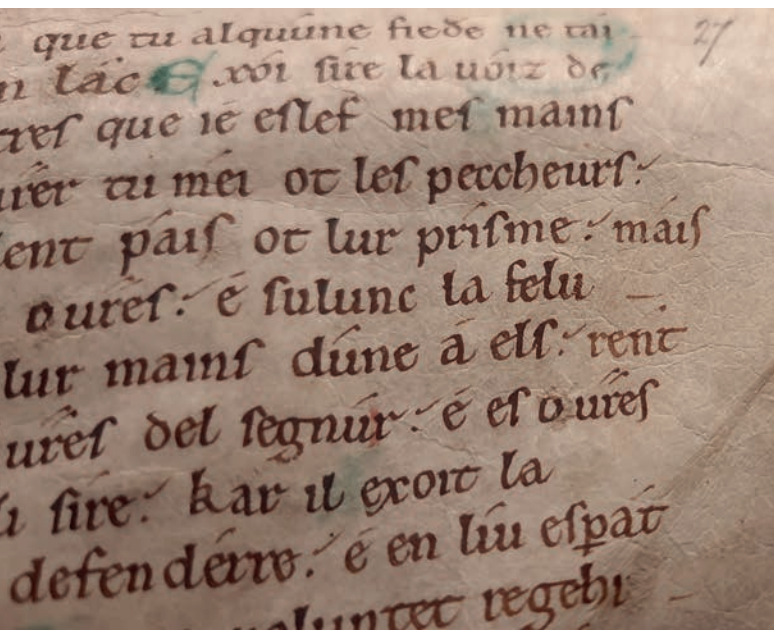 que tu alquune fiede ne tai 27
n lac Exoi sire la uoiz de
tres que ie eslef mes mains
urer tu mei ot les peccheurs:
ent pais ot lur prisme: mais
oures: e sulunc la felu
lur mains dune a els: rent
ures del segnur: e es oures
sire: kar il exoit la
defenderre: e en liu espat
uoluntet regehi